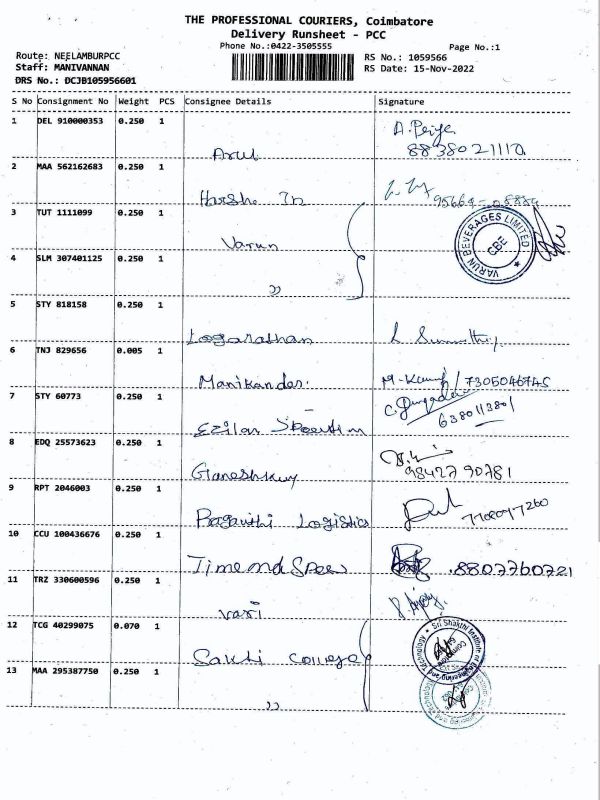 THE PROFESSIONAL COURIERS, Coimbatore
Delivery Runsheet - PCC
Phone No.:0422-3505555
Page No.:1
Route: NEELAMBURPCC
RS No.: 1059566
Staff: MANIVANNAN
RS Date: 15-Nov-2022
DRS No.: DCJB105956601
S No Consignment No Weight PCS Consignee Details Signature
1 DEL 910000353 0.250 1
Arul
8838021110
2 MAA 562162683 0.250 1
Harsha In
3 TUT 1111099 0.250 1
Varun
VARUN BEVERAGES LIMITED
CBE
4 SLM 307401125 0.250 1
"
5 STY 818158 0.250 1
Loganathan
6 TNJ 829656 0.005 1
Manikandan.
7305046745
7 STY 60773 0.250 1
Ezilan
8 EDQ 25573623 0.250 1
98427 90781
9 RPT 2046003 0.250 1
Logistics
10 CCU 100436676 0.250 1
Time and
8807760721
11 TRZ 330600596 0.250 1
Vasi
12 TCG 40299075 0.070 1
Sakthi College
Sri Shakthi Institute of Engineering and Technology
13 MAA 295387750 0.250 1
"